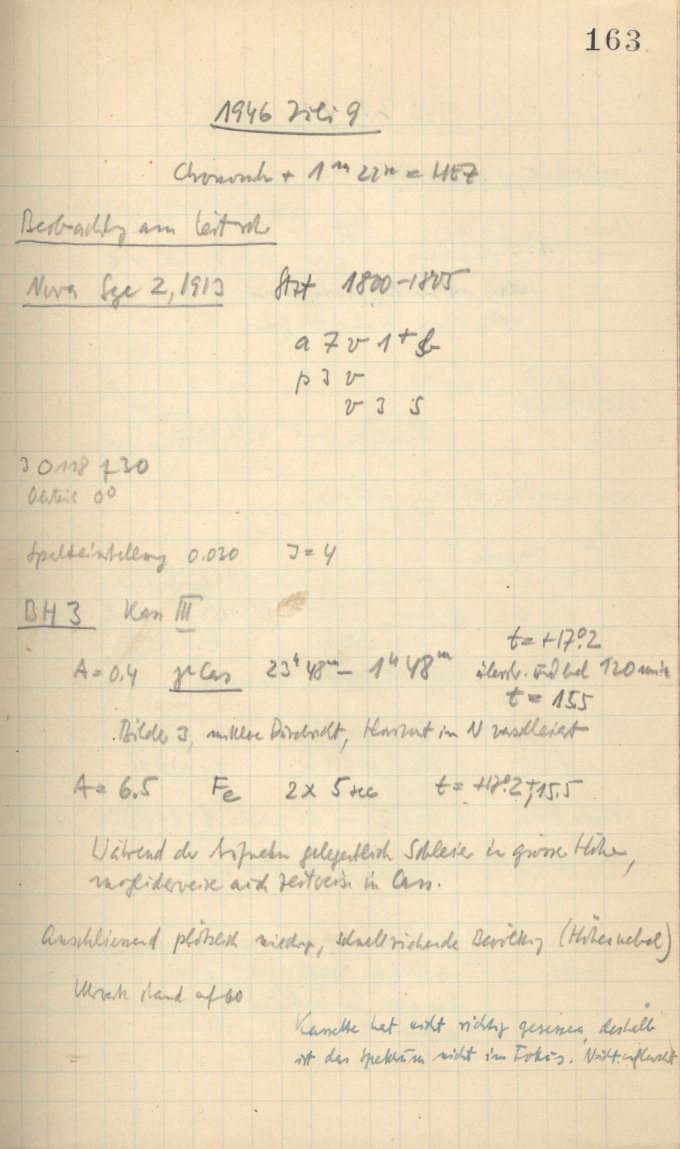 163
1946 Juli 9
+ 1m 22s = MEZ
Beobachtung am
Nova Sge 2, 1913 1800-1805
a 7 v 1+ b
p 3 v
v 3 s
30
0°
Spalteinstellung 0.030 J = 4
BH 3 Kass III
t = +17°.2
A = 0.4 γ Cas 23h 48m – 1h 48m 120 min
t = 15.5
Bilder 3, mittlere Durchsicht, Horizont im N verschleiert
A = 6.5 Fe 2 x 5 sec t = +17°.2, 15.5
Während der Aufnahme gelegentlich Schleier in grosser Höhe,
möglicherweise auch zeitweise in Cass.
Anschliessend plötzlich niedrige, schnell ziehende Bewölkung (Höhennebel)
Uhrwerk stand auf 60
Kassette hat nicht richtig gesessen, deshalb
ist das Spektrum nicht im Fokus.